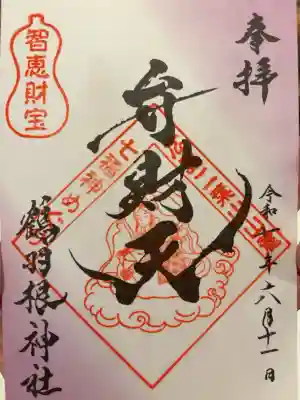 奉拝
智恵財宝
弁財天
七福神
令和七年六月十一日
鶴羽根神社